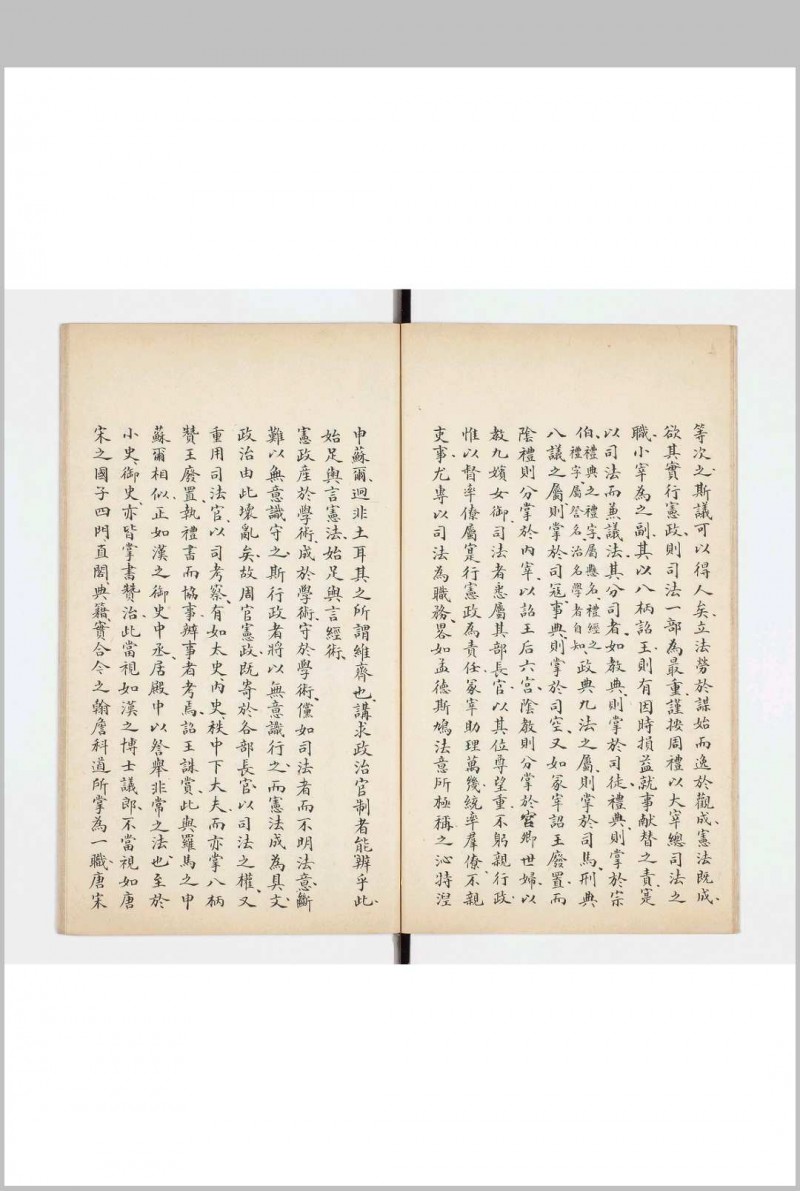 等次之、斯議可以得人矣、立法勞於謀始而逸於觀成、憲法既成、
欲其實行憲政、則司法一部為最重、謹按周禮以大宰總司法之
職、小宰為之副、其以八柄詔王、則有因時損益就事献替之責、寔
以司法而兼議法、其分司者、如教典則掌於司徒、禮典則掌於宗
伯、禮典之禮字屬懸名、禮經之
禮字、屬詧名、治名學者自知、政典九法之屬、則掌於司馬、刑典
八議之屬、則掌於司寇、事典則掌於司空、又如冢宰詔王廢置、而
陰禮則分掌於內宰、以詔王后六宮、陰教則分掌於宮卿世婦、以
教九嬪女御、司法者悉屬其部長官、以其位尊望重、不躬親行政、
惟以督率僚屬寔行憲政為責任、冢宰助理萬幾、統率羣僚、不親
吏事、尤專以司法為職務、畧如孟德斯鳩法意所極稱之沁特涅
申蘇爾、迥非土耳其之所謂維齊也、講求政治官制者、能辨乎此、
始足與言憲法、始足與言經術、
憲政產於學術、成於學術、守於學術、僅如司法者而不明法意、斷
難以無意識守之、斯行政者將以無意識行之、而憲法成為具文、
政治由此壞亂矣、故周官憲政、既寄於各部長官以司法之權、又
重用司法官、以司考察、有如太史內史、秩中下大夫、而亦掌八柄
贊王廢置、執禮書而協事、辦事者考焉、詔王誅賞、此與羅馬之申
蘇爾相似、正如漢之御史中丞、居殿中以詧舉非常之法也、至於
小史、御史、亦皆掌書贊治、此當視如漢之博士議郎、不當視如唐
宋之國子四門、直閣典籍、實合今之翰詹科道所掌為一職、唐宋